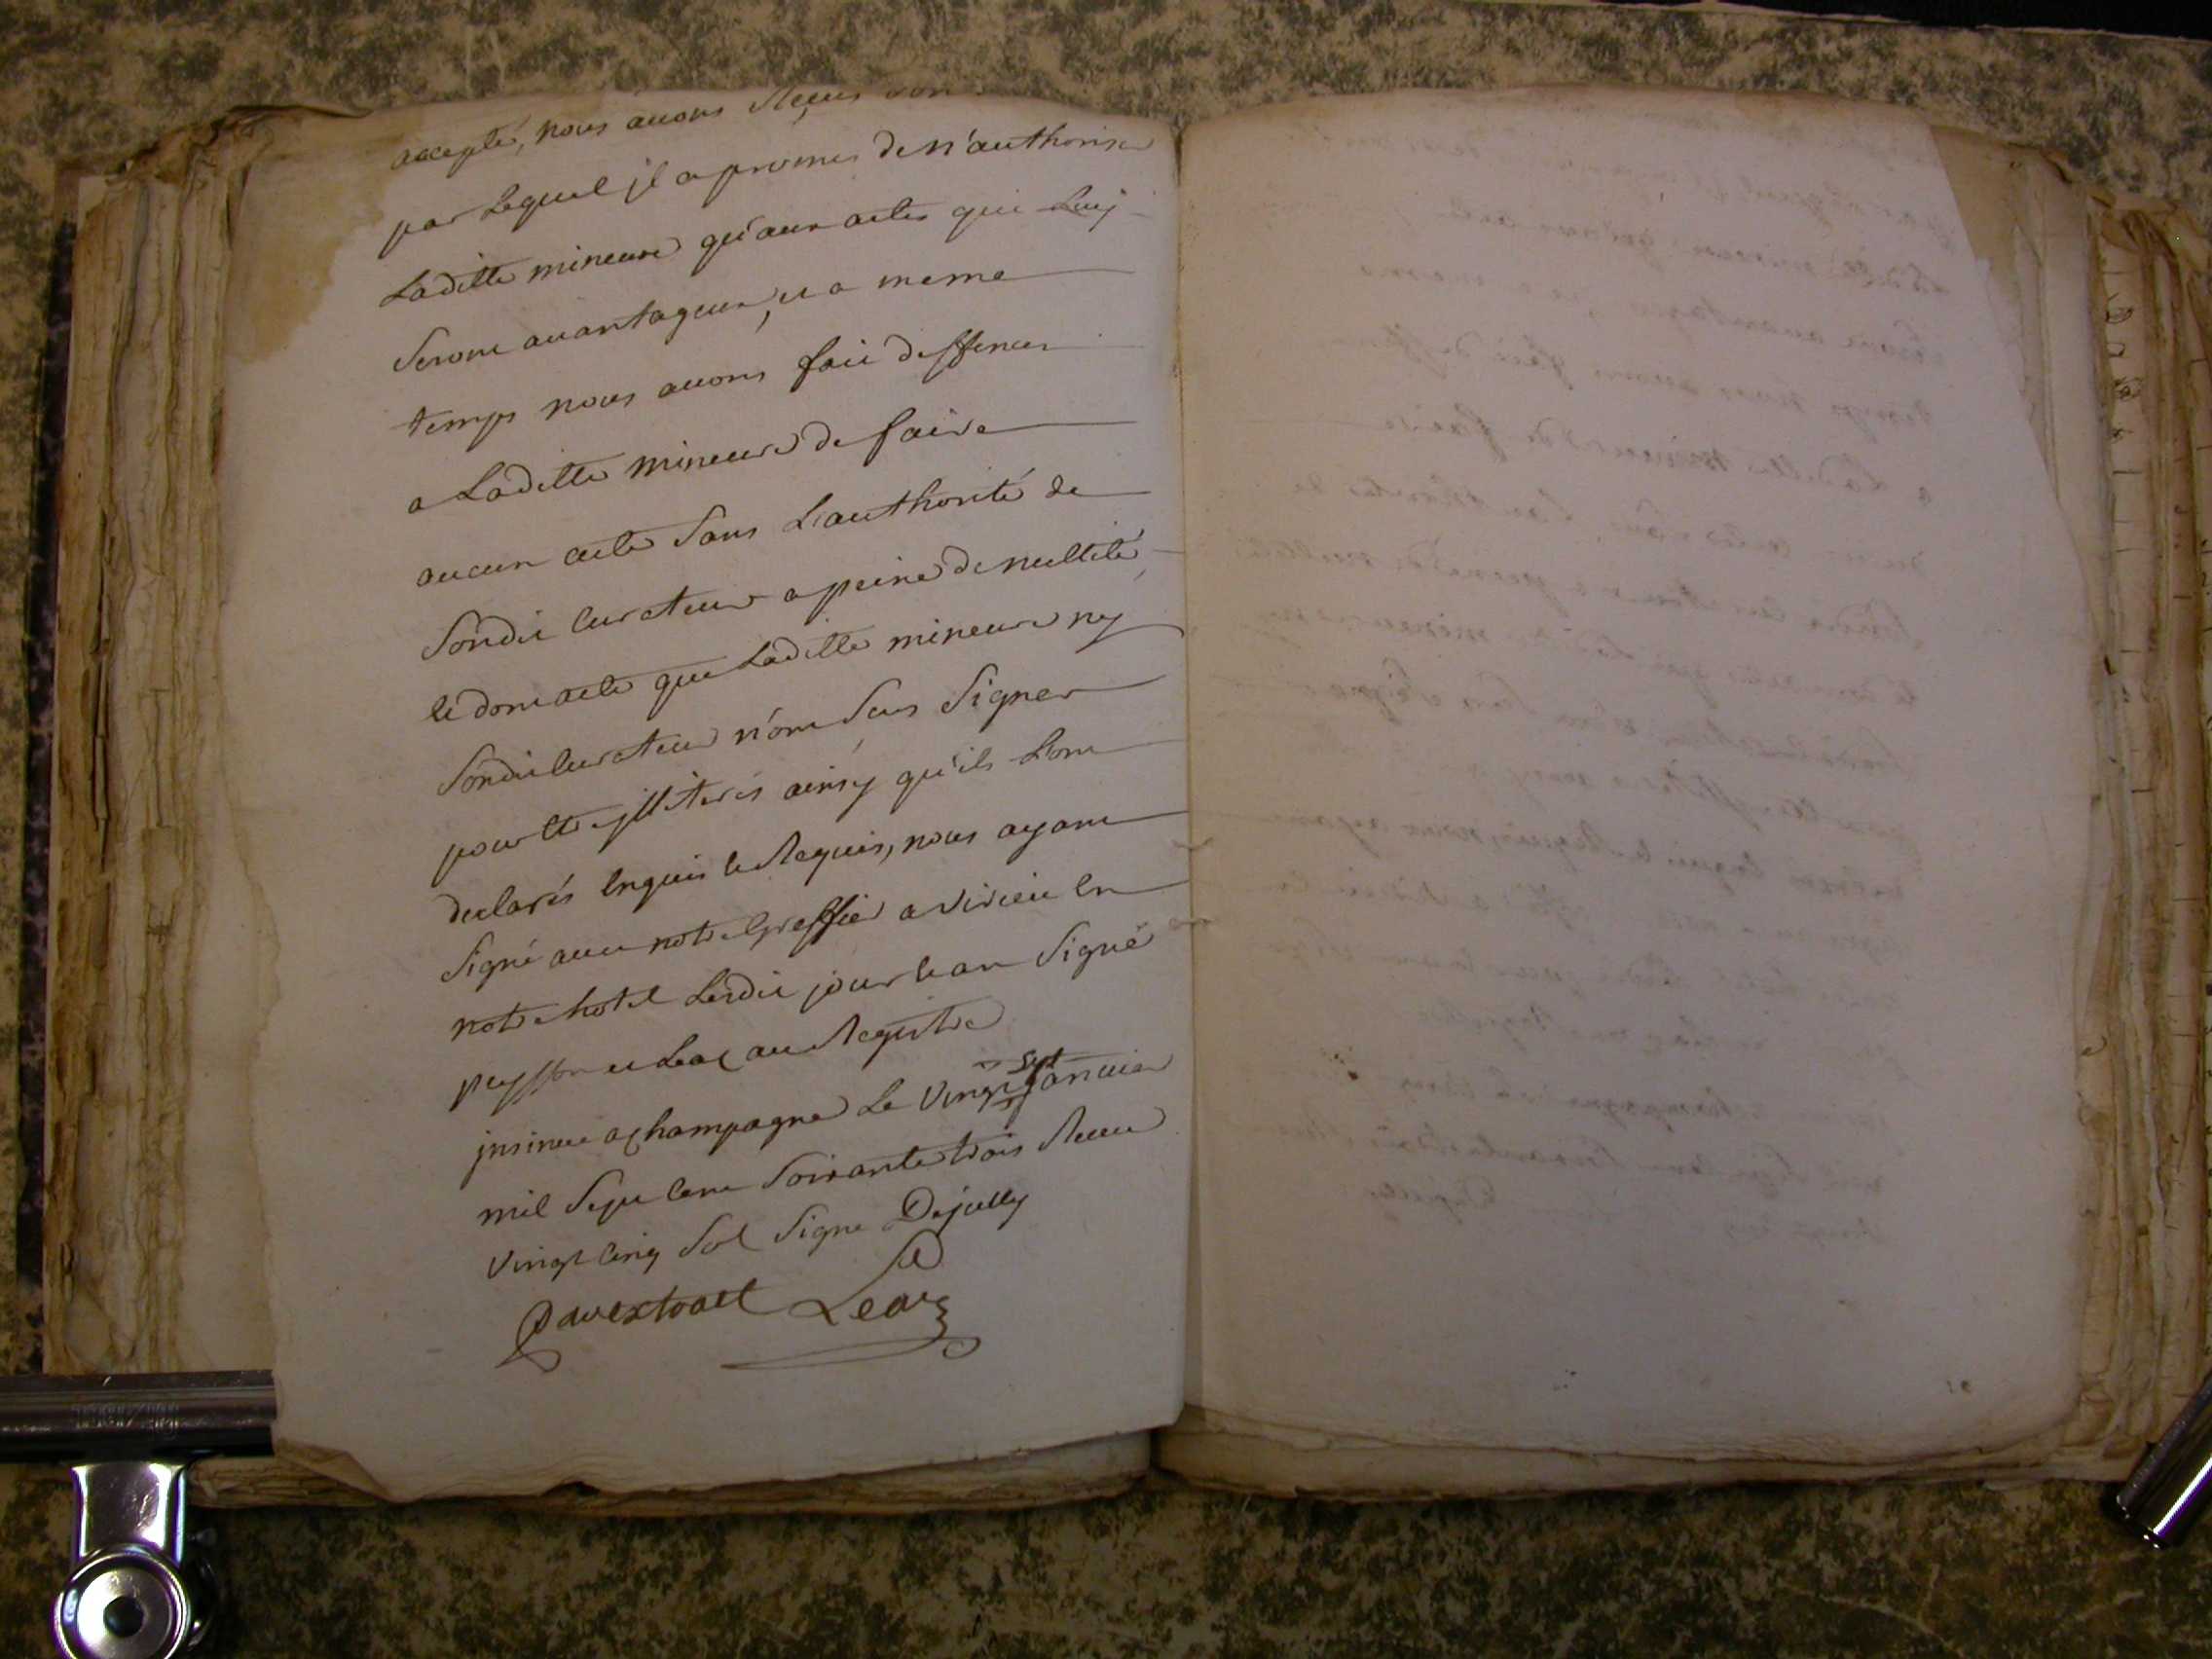 accepté, nous auons Reçus son
par Lequel jl a promis de n'authoriser
Laditte mineure qu'aux actes qui Luy
Seront auantageux, et a meme
temps nous auons fait deffences
a Laditte mineure de faire
aucun acte Sans L'authorité de
Sondit Curateur a peine de nullité,
et dont acte que Laditte mineure ny
Sondit Curateur n'ont Sçus Signer
pour etre jlliterés ainsy qu'ils L'ont
declarés Enquis et Requis, nous ayant
Signé auec notre Greffier a Virieu En
notre hotel Lesdit jour et an Signé
peysson et Leaz au Registre
jnsinué a Champagne Le Vingt sept Januier
mil Sept Cent Soixante trois Receu
Vingt Cinq Sol Signe Dejully
Par extrait Leaz